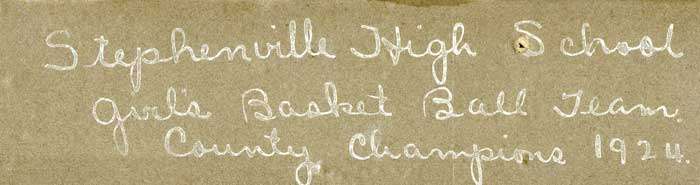 Stephenville High School
Girl's Basket Ball Team.
County Champions 1924.